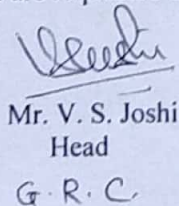 Mr. V. S. Joshi
Head
G. R. C.